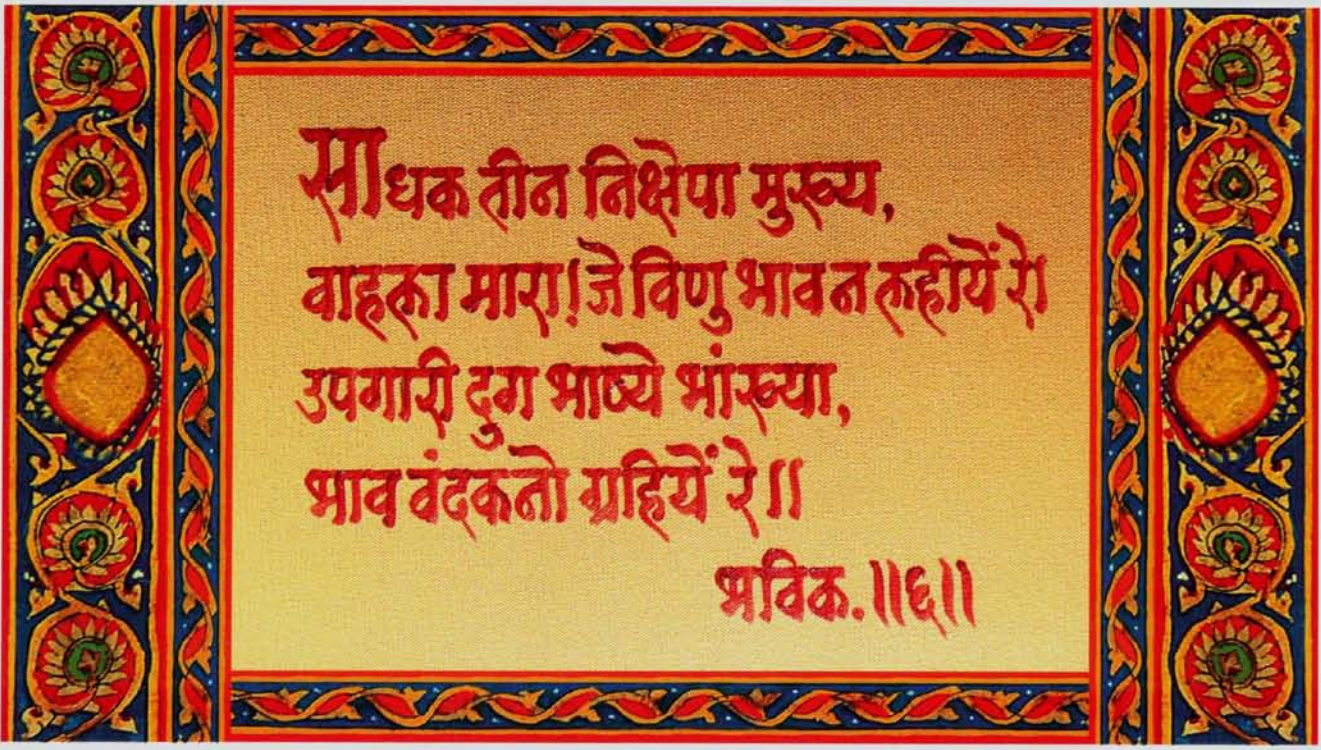 साधक तीन निक्षेपा मुख्य,
वाहला मारा! जे विणु भाव न लहीयें रे।
उपगारी दुग भाष्ये भांख्या,
भाव वंदकनो ग्रहियें रे॥
भविक.॥६॥